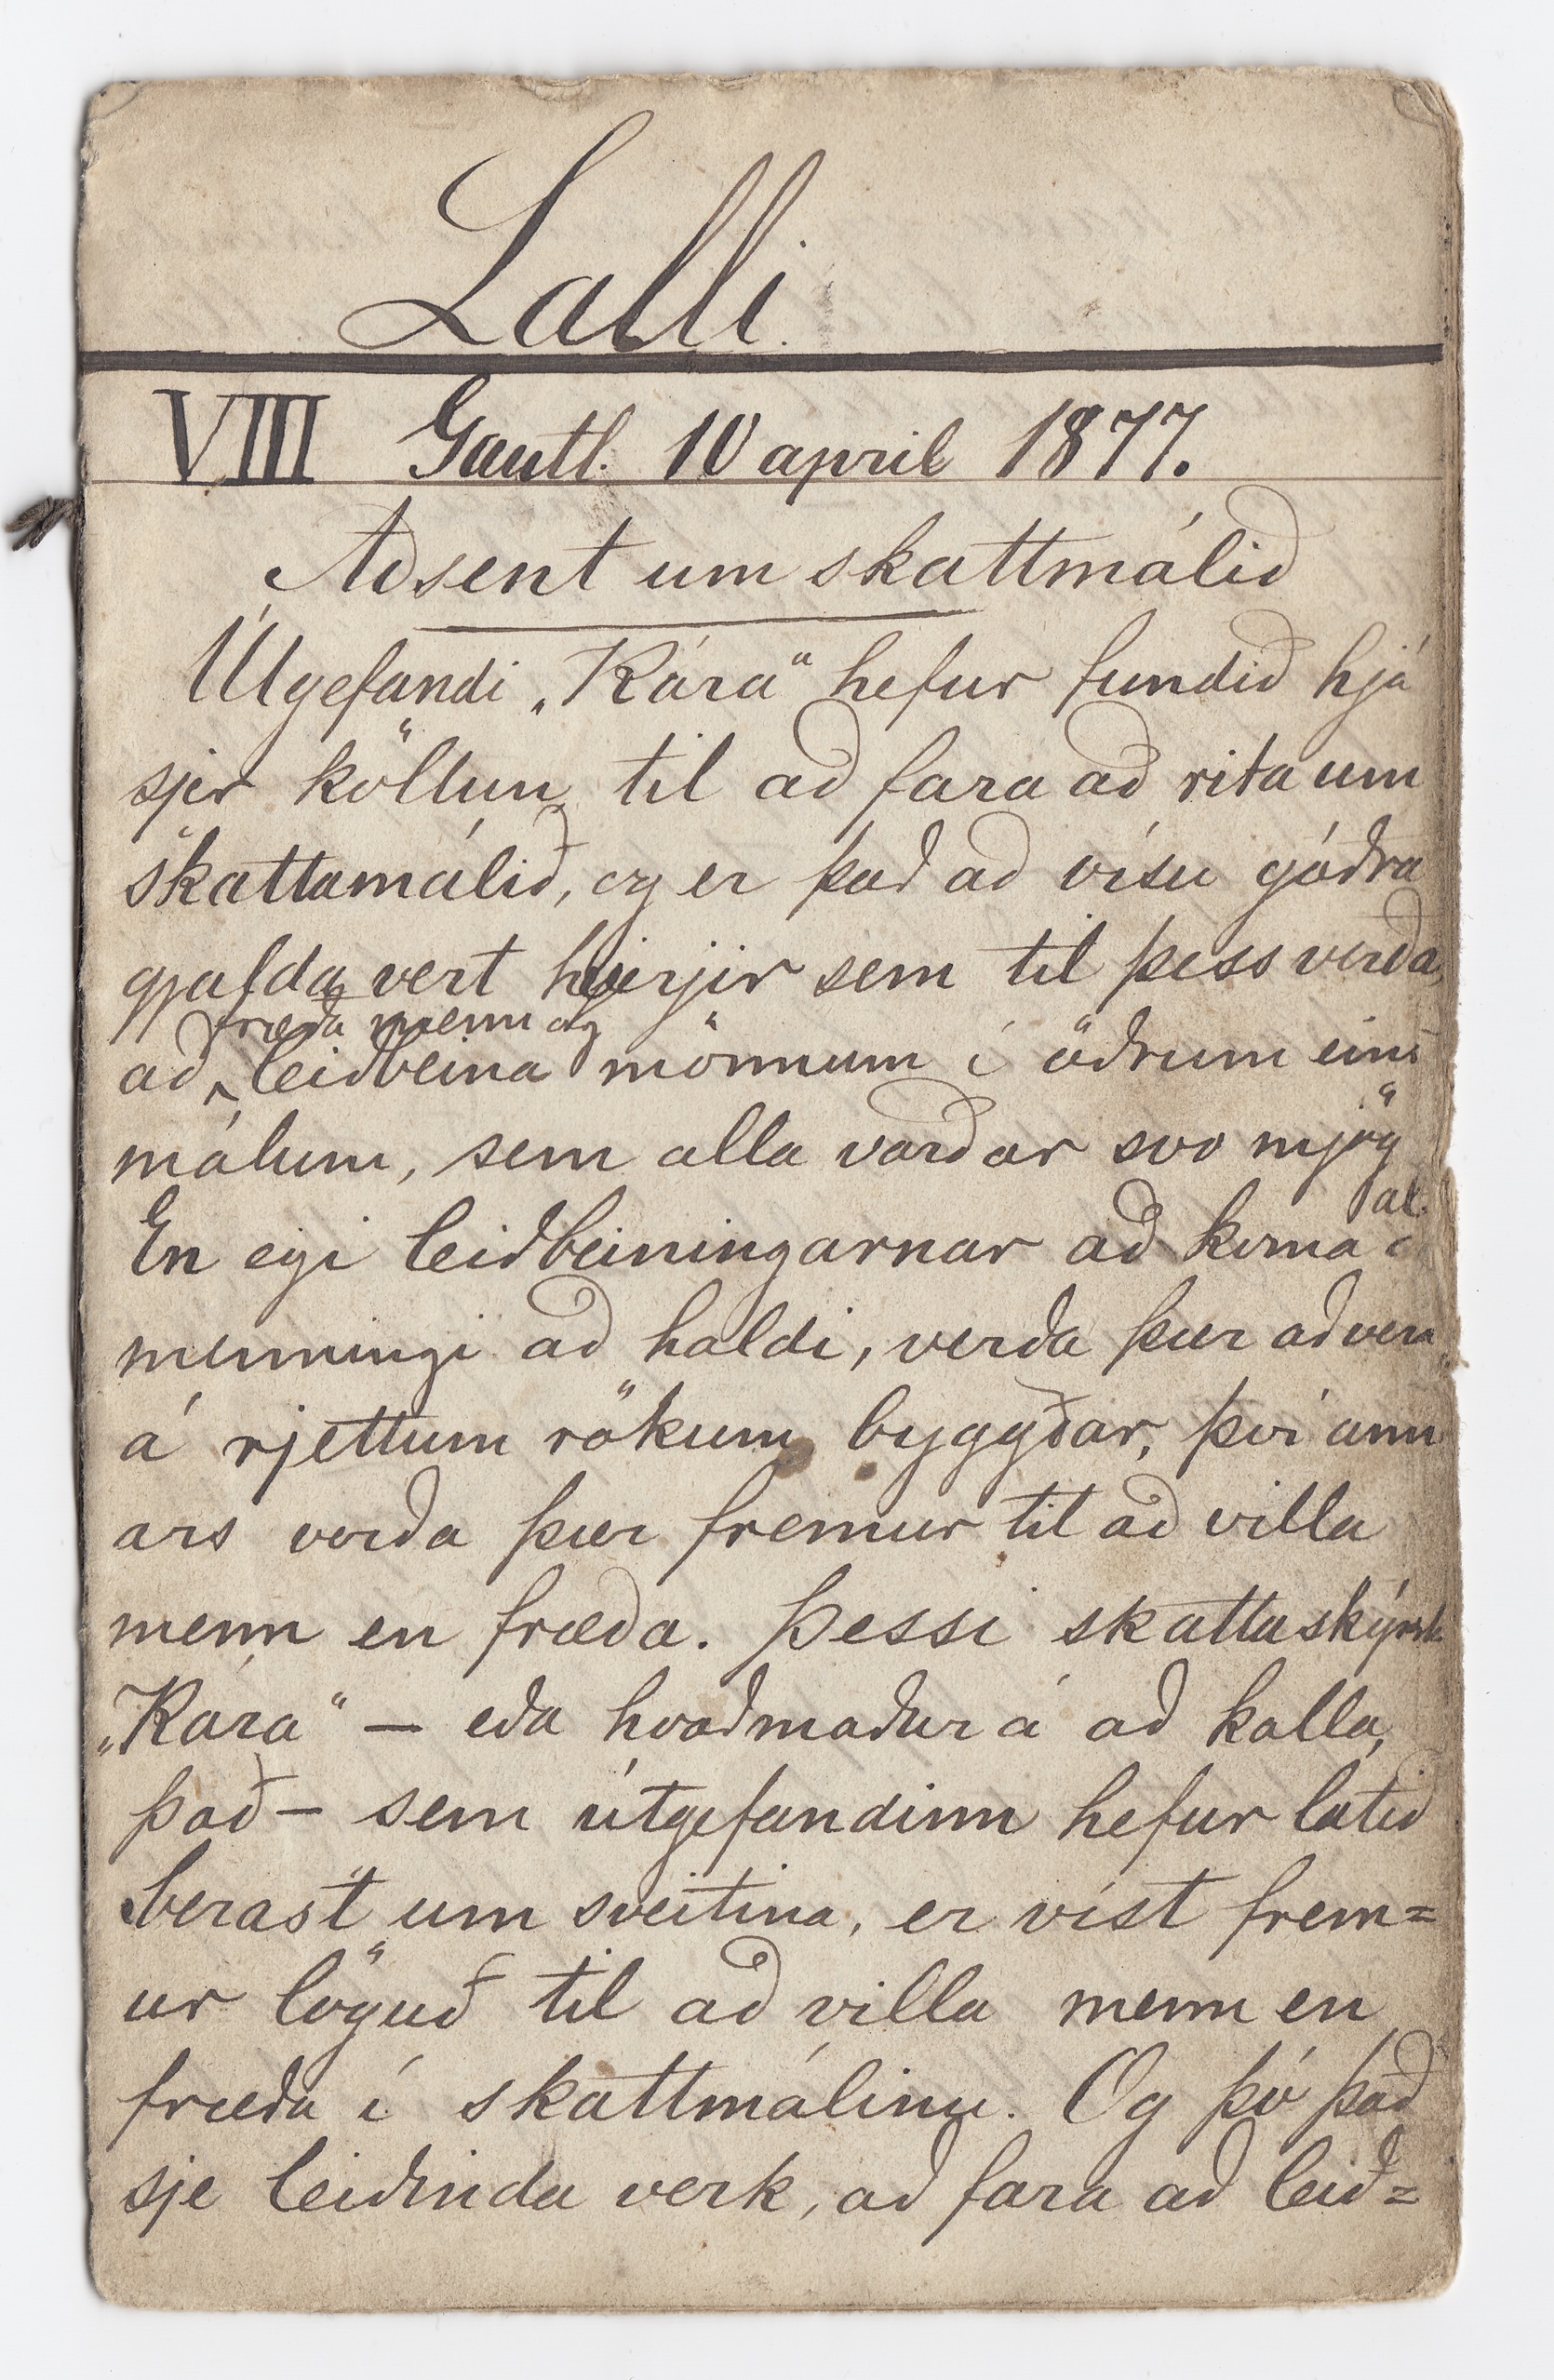 Lalli.
VIII Gautl. 10 april 1877.
Aðsent um skattmálið
Útgefandi „Kára“ hefur fundið hjá
sjer köllun til að fara að rita um
skattamálið, og er það að vísu góðra
gjalda vert hverjir sem til þess verða,
fræða menn og
að leiðbeina mönnum í öðrum eins
málum, sem alla varðar svo mjög
En eigi leiðbeiningarnar að koma al-
menningi að haldi, verða þær að vera
á rjettum rökum byggðar, því ann
ars verða þær fremur til að villa
menn en fræða. Þessi skattaskýrsla
„Kára“ – eða hvað maður á að kalla,
það – sem útgefandinn hefur látið
berast um sveitina, er víst frem=
ur löguð til að villa menn en
fræða í skattmálinu. Og þó það
sje leiðinda verk, að fara að leið=